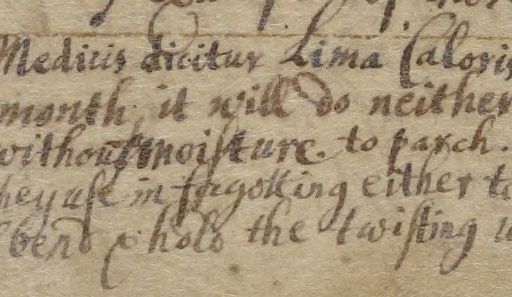 Medicis dicitur Lima Caloris
month, it will do neither
without moisture. to parch.
they use in fagotting either to
bend & hold the twisting